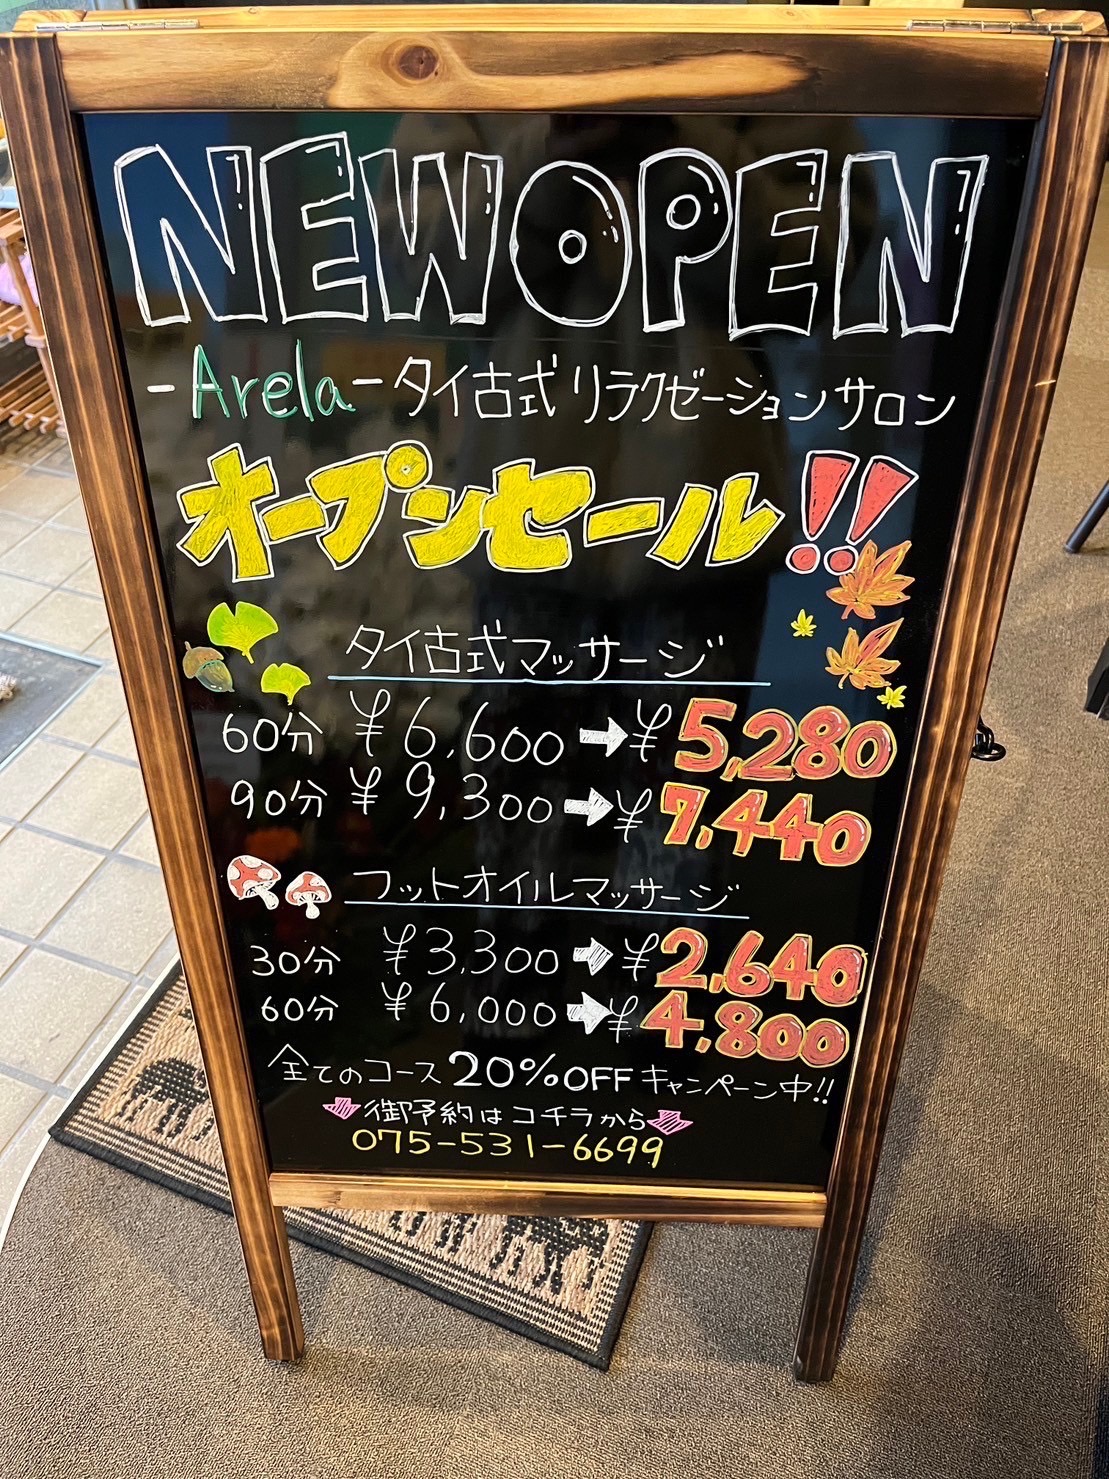 NEW OPEN
-Arela- タイ古式リラクゼーションサロン
オープンセール!!
タイ古式マッサージ
60分 ¥6,600 → ¥5,280
90分 ¥9,300 → ¥7,440
フットオイルマッサージ
30分 ¥3,300 → ¥2,640
60分 ¥6,000 → ¥4,800
全てのコース 20%OFF キャンペーン中!!
御予約はコチラから
075-531-6699